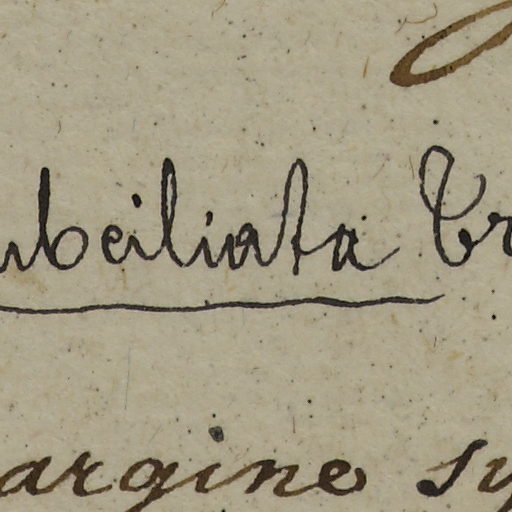 ubciliata Br
argine sy